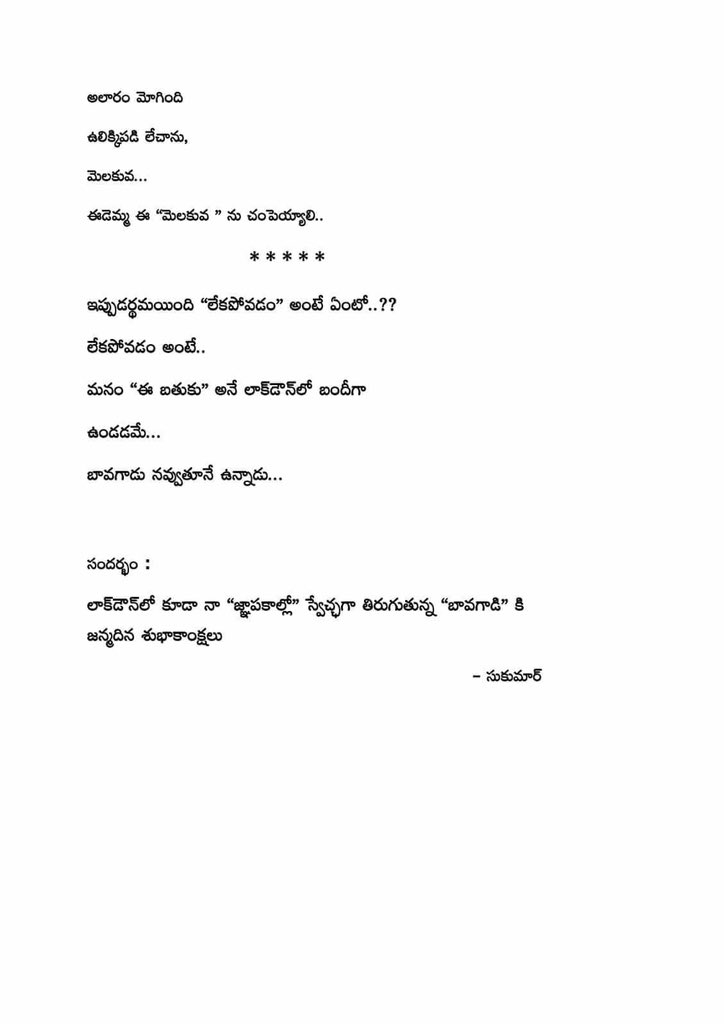 అలారం మోగింది
ఉలిక్కిపడి లేచాను,
మెలకువ...
ఈడెమ్మ ఈ “మెలకువ ” ను చంపెయ్యాలి..
* * * * *
ఇప్పుడర్థమయింది “లేకపోవడం” అంటే ఏంటో..??
లేకపోవడం అంటే..
మనం “ఈ బతుకు” అనే లాక్‌డౌన్‌లో బందీగా
ఉండడమే...
బావగాడు నవ్వుతూనే ఉన్నాడు...
సందర్భం :
లాక్‌డౌన్‌లో కూడా నా “జ్ఞాపకాల్లో” స్వేచ్ఛగా తిరుగుతున్న “బావగాడి” కి
జన్మదిన శుభాకాంక్షలు
– సుకుమార్